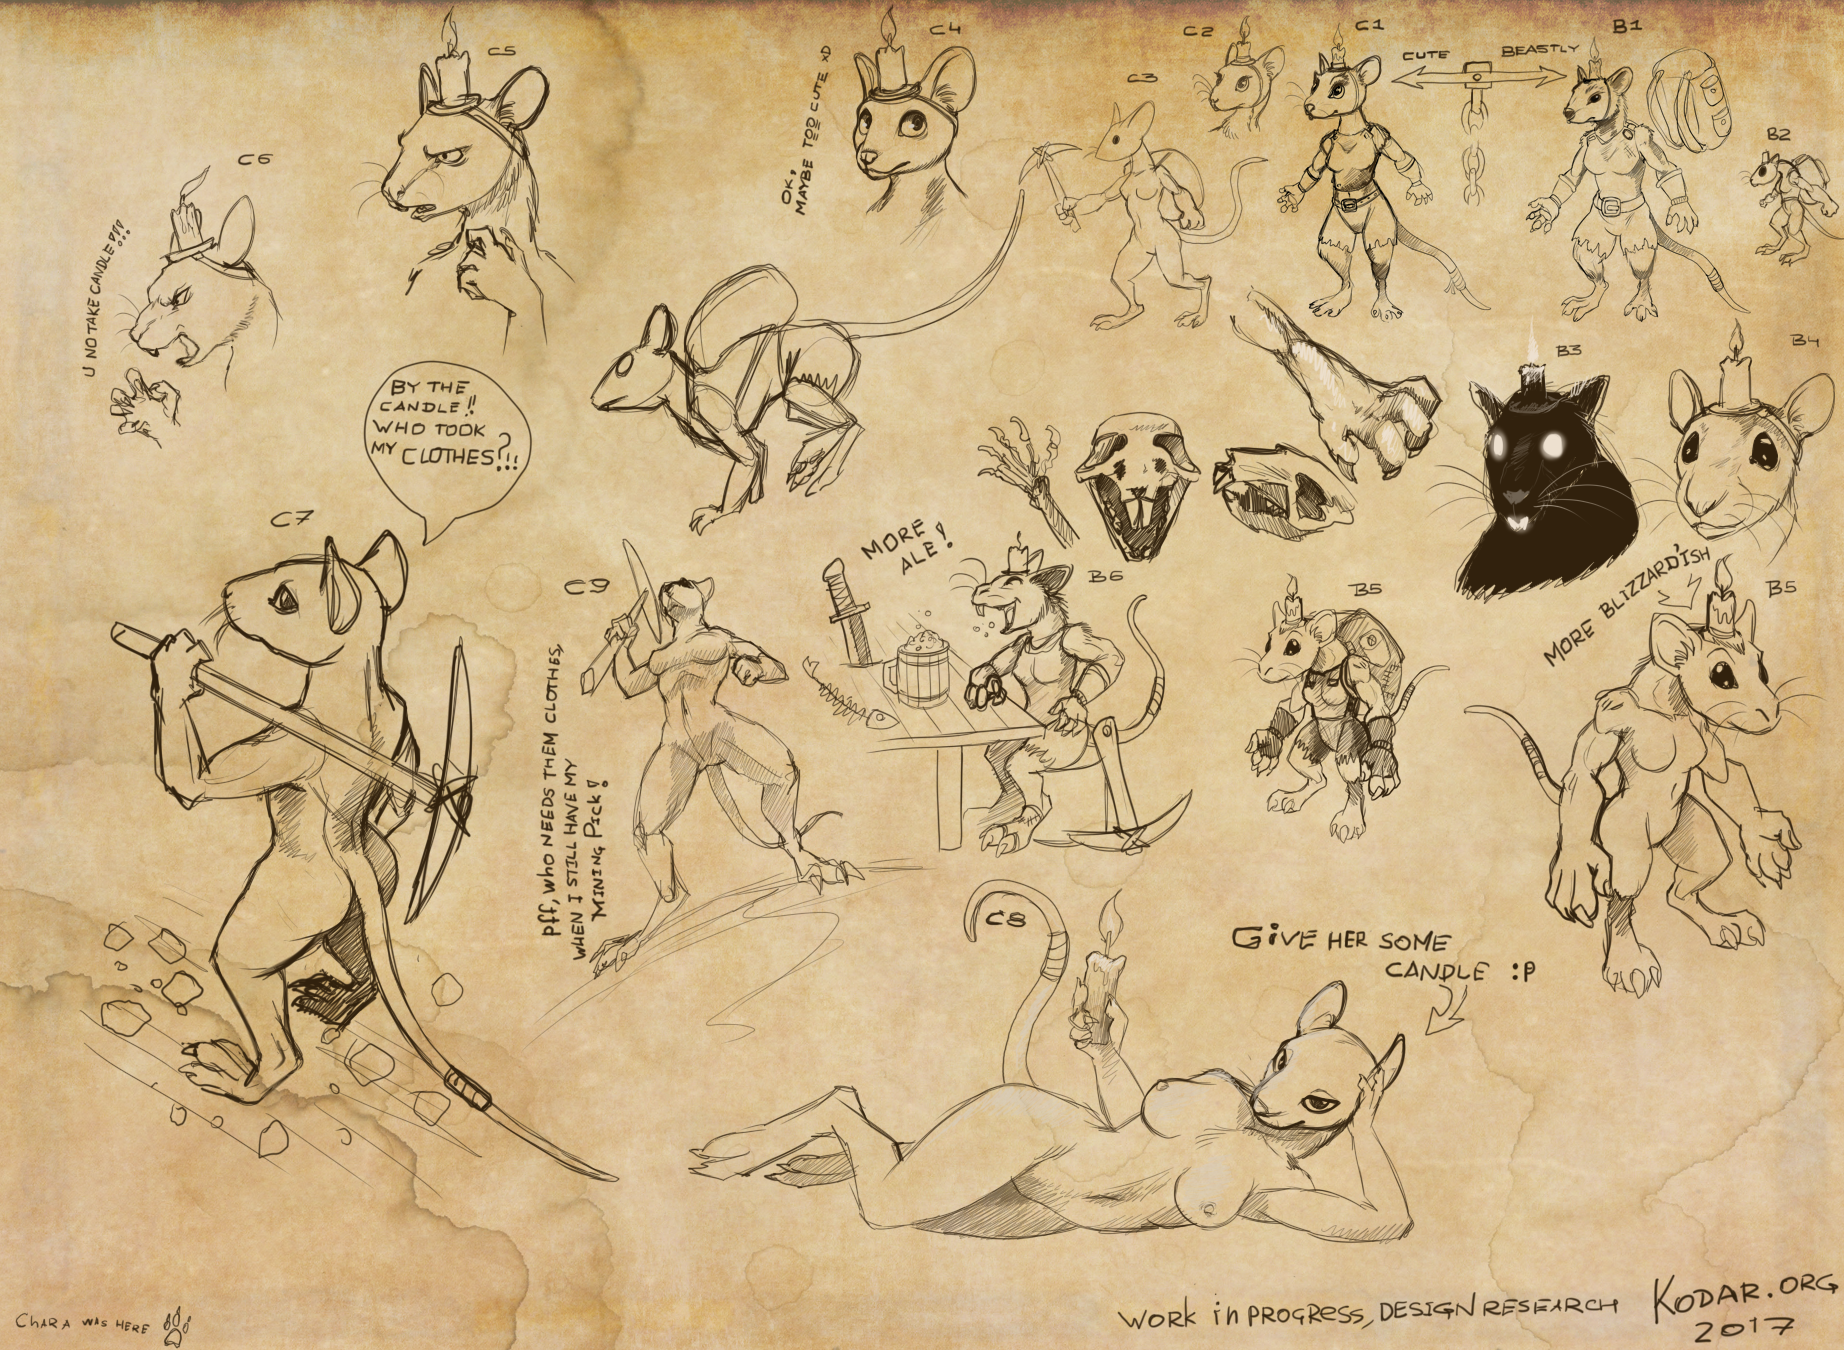 C5
C4
C2
C1
B1
CUTE
BEASTLY
C3
B2
C6
OK,
MAYBE TOO CUTE XD
U NO TAKE CANDLE!?!!!
B3
B4
BY THE
CANDLE!!
WHO TOOK
MY CLOTHES?!!!
C7
MORE
ALE!
C9
B6
B5
MORE BLIZZARD'ISH
B5
Pff, WHO NEEDS THEM CLOTHES,
WHEN I STILL HAVE MY
MINING PICK!
C8
GIVE HER SOME
CANDLE :P
CHARA WAS HERE
WORK in PROGRESS, DESIGN RESEARCH
KODAR.ORG
2017